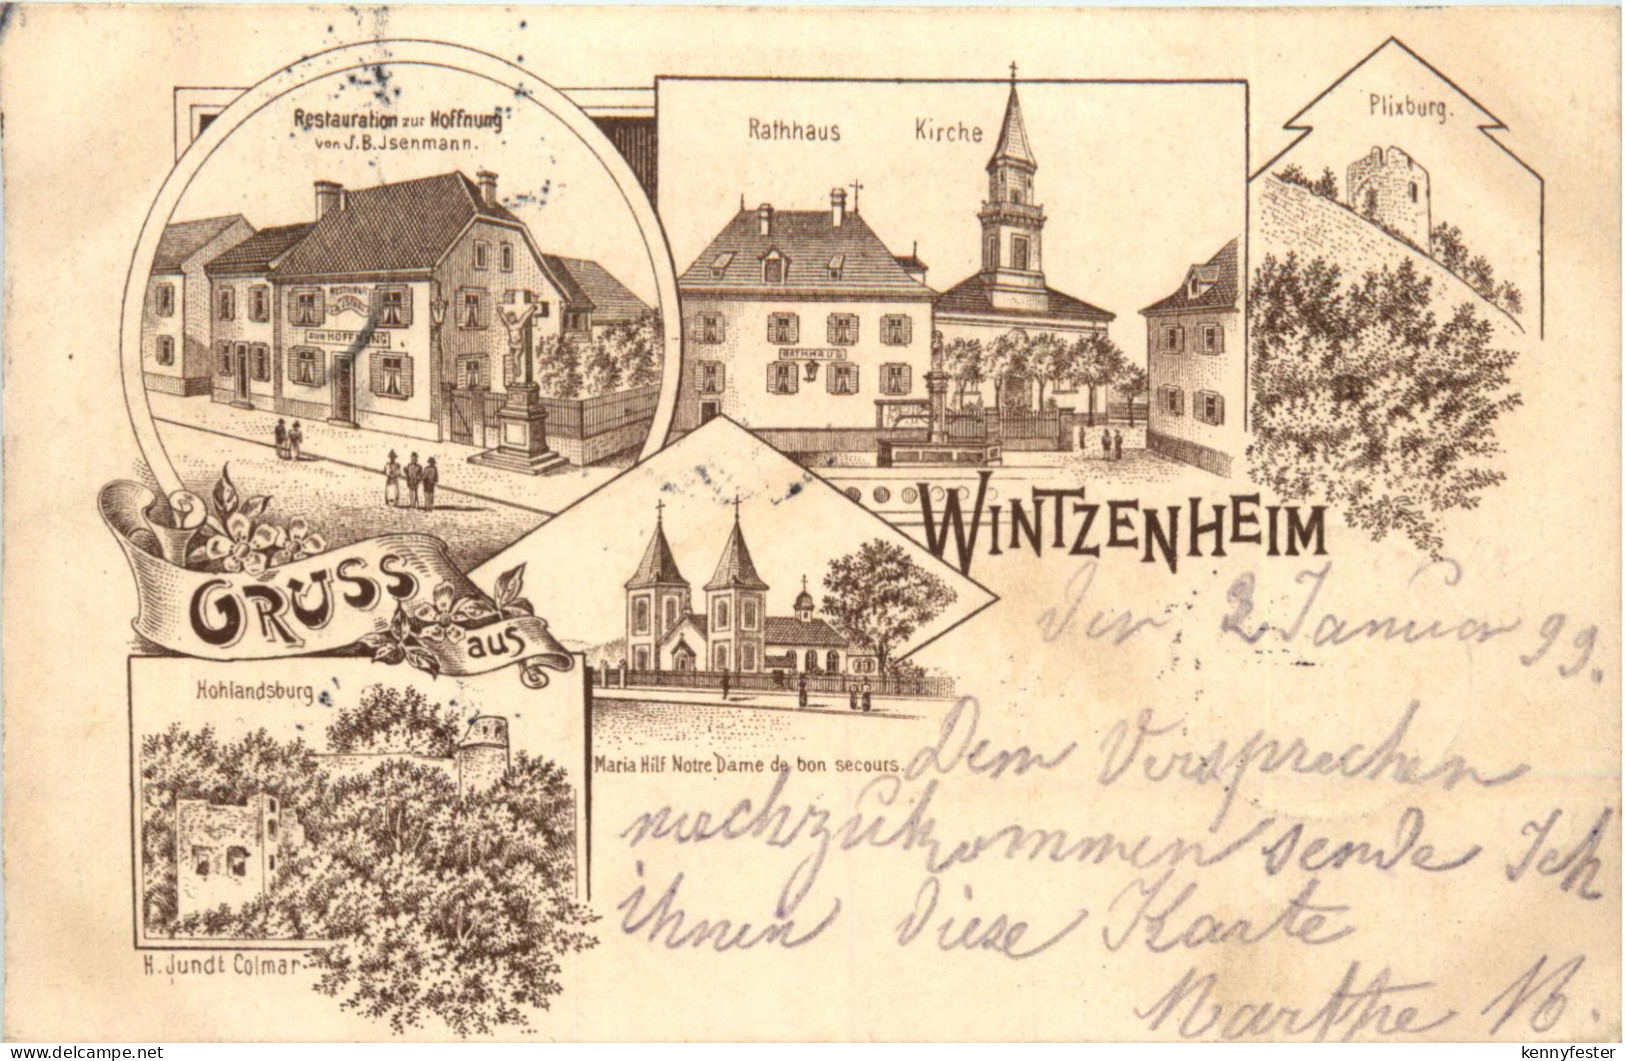 Restauration zur Hoffnung
von J.B. Jsenmann.
ZUR HOFFNUNG
Rathhaus Kirche
RATHHAUS
Plixburg.
GRÜSS
aus
WINTZENHEIM
den 2 Januar 99.
Hohlandsburg
Maria Hilf Notre Dame de bon secours.
Dem Versprechen
nachzukommen sende Ich
ihnen diese Karte
Marthe
H. Jundt Colmar
kennyfester